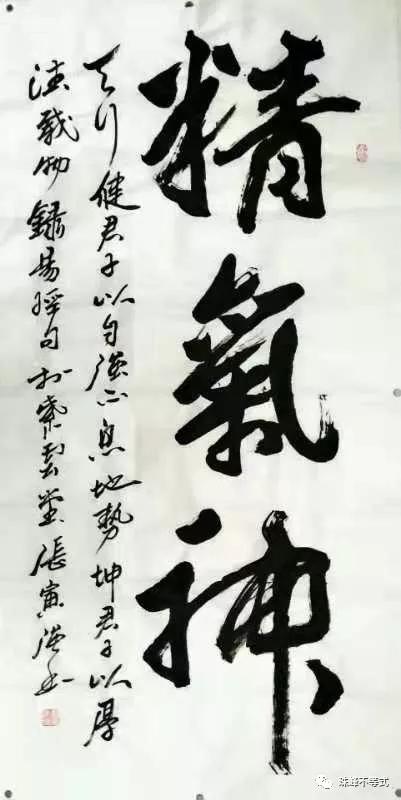 精氣神
天行健君子以自強不息地勢坤君子以厚
德載物錄易經句於紫雲堂張寅書
珠峰不等式